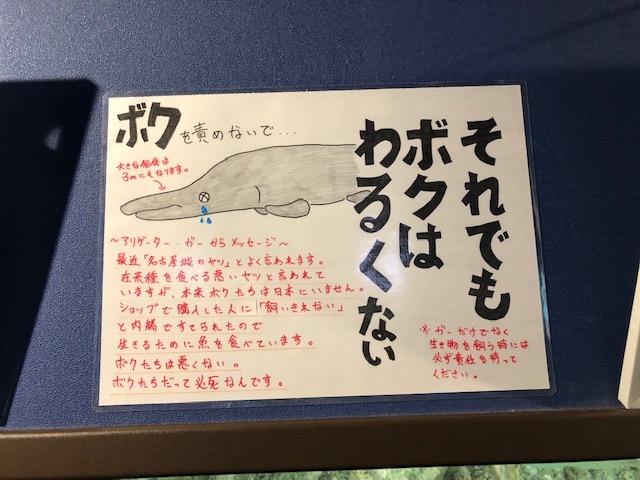 それでも
ボクは
わるくない
ボクを責めないで...
大きな個体は
3mにもなります。
～アリゲーター・ガーからメッセージ～
最近「名古屋城のヤツ」とよく言われます。
在来種を食べる悪いヤツと言われて
いますが、本来ボクたちは日本にいません。
ショップで購入した人に「飼いきれない」
と内緒ですてられたので
生きるために魚を食べています。
ボクたちは悪くない。
ボクたちだって必死なんです。
※ガーだけでなく
生き物を飼う時には
必ず責任を持って
ください。